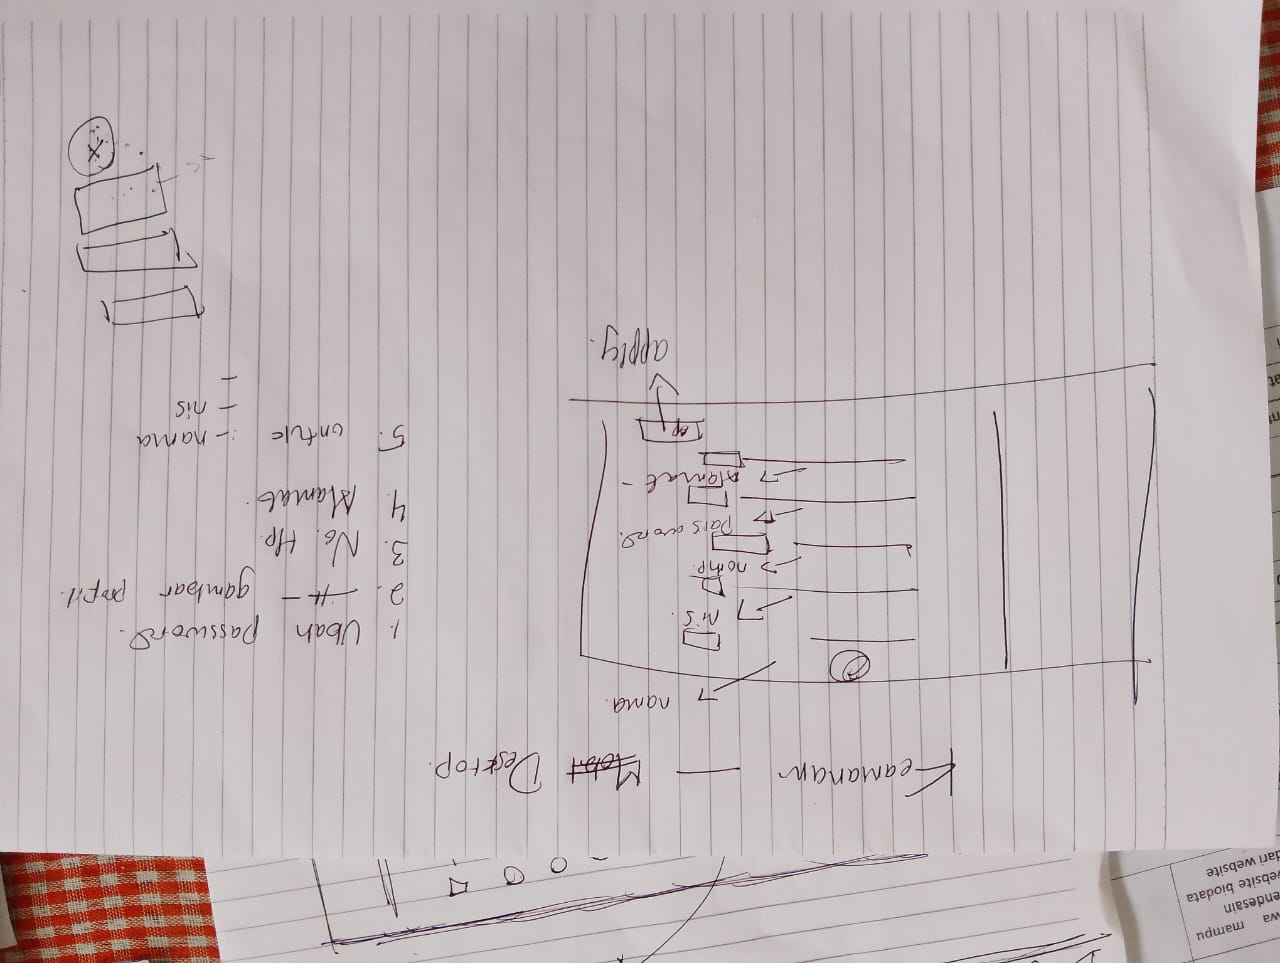 wa mampu
endesain
website biodata
dari website
Keamanan — Desktop.
nama.
nis.
nohp.
Password.
Alamat -
AP
apply.
1. Ubah password.
2. —〃— gambar profil.
3. No. Hp.
4. Alamat.
5. untuk :- nama
- nis
-